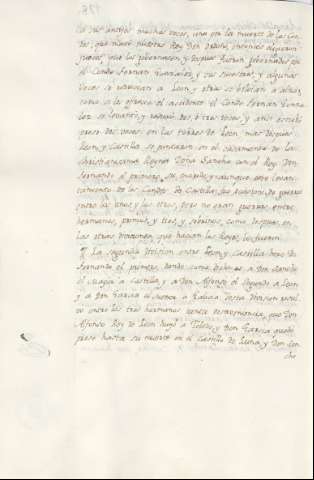 muchas veces, una por la muerte de los Con
des, que mato nuestro Rey Don Ordoño, entonces eligieron
Jueces, que los governasen, y despues fueron governados por
el Conde Fernan Gonzalez, y sus suzesores, y algunas
veces se reducian a Leon, y otras se bolvian a alzar,
como se le ofrecia el accidente el Conde Fernan Gonza
lez se levanto, y reduxo dos, o tres veces, y asi estubo
preso dos veces en las torres de Leon, mas despues
Leon, y Castilla se juntaron en el casamiento de la
christianisima Reyna Doña Sancha con el Rey Don
Fernando el primero, su marido, y aunque este levan
tamiento de los Condes de Castilla, fue ocasion de guerras
entre los unos, y los otros, pero no eran guerras entre
hermanos, primos, y tios, y sobrinos, como despues en
las otras divisiones, que hacian los Reyes, lo fueron.
La segunda division entre Leon, y Castilla hizo Dn
Fernando el primero, dando como dividio a Don Sancho
el a Castilla, y a Don Alfonso el segundo a Leon
y a Don Garcia el menor a Galicia desta division resul
to entre los tres hermanos tanta desavenencia, que Don
Alfonso Rey de Leon huyó a Toledo, y Don Garcia quedó
preso hasta su muerte en el Castillo de Luna, y Don San
cho